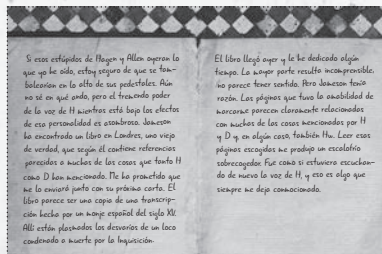 Si esos estúpidos de Hagen y Allen oyeran lo
que yo he oído, estoy seguro de que se tam-
balearían en lo alto de sus pedestales. Aún
no sé en qué ando, pero el tremendo poder
de la voz de H mientras está bajo los efectos
de esa personalidad es asombroso. Janeson
ha encontrado un libro en Londres, uno viejo
de verdad, que según él contiene referencias
parecidas a muchas de las cosas que tanto H
como D han mencionado. Me ha prometido que
me lo enviará junto con su próxima carta. El
libro parece ser una copia de una transcrip-
ción hecha por un monje español del siglo XV.
Allí están plasmados los desvaríos de un loco
condenado a muerte por la Inquisición.
El libro llegó ayer y le he dedicado algún
tiempo. La mayor parte resulta incomprensible,
no parece tener sentido. Pero Janeson tenía
razón. Las páginas que tuvo la amabilidad de
marcarme parecen claramente relacionadas
con muchas de las cosas mencionadas por H
y D y, en algún caso, también Hw. Leer esas
páginas escogidas me produjo un escalofrío
sobrecogedor. Fue como si estuviera escuchan-
do de nuevo la voz de H, y eso es algo que
siempre me deja conmocionado.